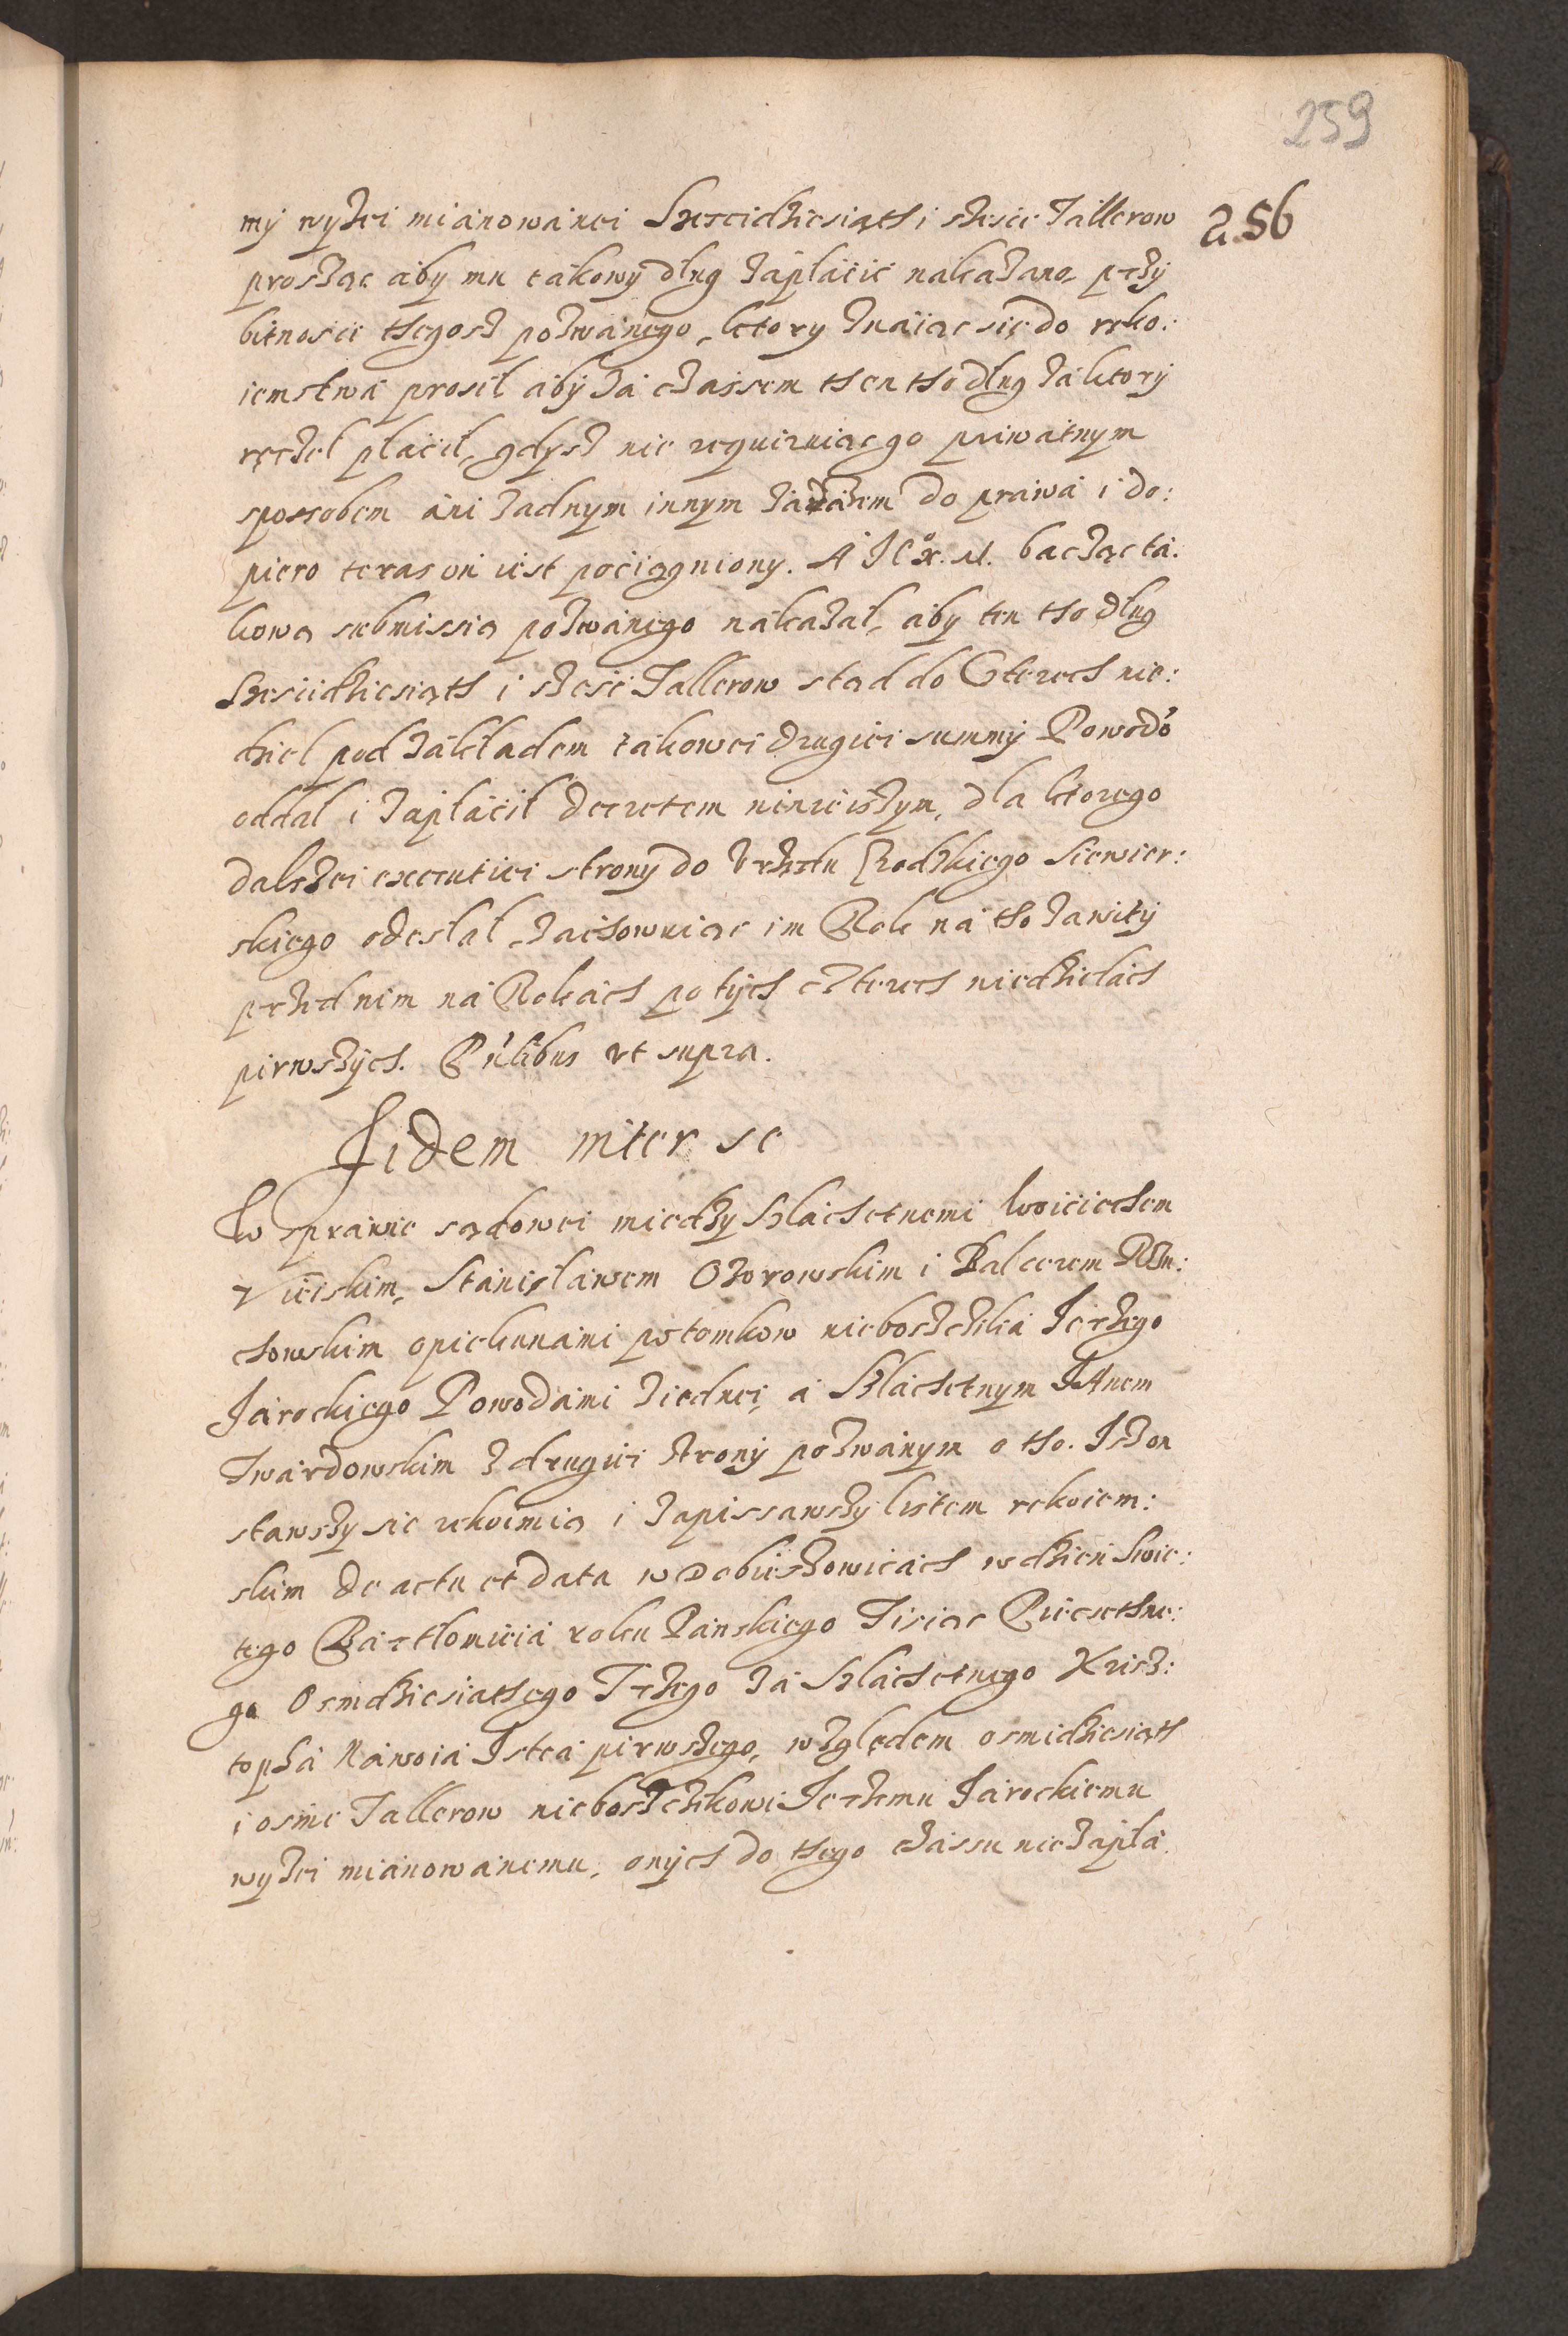 259
256
my wyżei mianowanei Szescidziesiąth i szesci Tallerow
prosząc aby mu takowy dług zapłacic nakazano przy
bitnoscii thegosz pozwanego, ktory znaiąc się do ręko:
iemstwa prosił aby za czassem then tho dług za ktory
ręczel płacił, gdysz nie requiruiąc go priwatnym
spossobem ani żadnym innym do prawa i do:
piero teras on iest pociągniony. A bacząc ta:
kową submissią pozwanego nakazał, aby ten tho dług
Szesciidziesiąth i szesc Tallerow stąd do Czterech nie:
dziel pod zakładem takowei drugiei summy Powodo
oddal i zapłacił decretem ninieiszym, dla ktorego
dalszei executiei strony do Vrzędu Grodzkiego Siewier:
skiego odesłał, zachowuiąc im Rok na tho zawity
przed nim na Rokach po tych czterech niedzielach
pirwszych. Pntibus vt supra.
Iidem inter se
W sprawie sądowei miedzy Szlachetnemi Woiciechem
Stanisławem Ożorowskim i Balcerem
chowskim opiekunami potomkow nieboszczika Jerzego
Jarockiego Powodami ziednei, a Szlachetnym JAnem
Twardowskim z drugiei strony pozwanym o tho. Iż on
stawszy sie rekoimią i zapissawszy listem rekoiem:
skim de actu et data w Dobieszowicach w dzien Swie:
tego Bartłomieia roku Panskiego Tisiąc Piecsethne:
go Osmdziesiathego Trzego za Szlachetnego Krisz:
topha Nawoia Istca pirwszego, względem osmidziesiąth
i osmi Tallerow nieboszczikowi Jerzemu Jarockiemu
wyżei mianowanemu, onych do thego czassu nie zapła